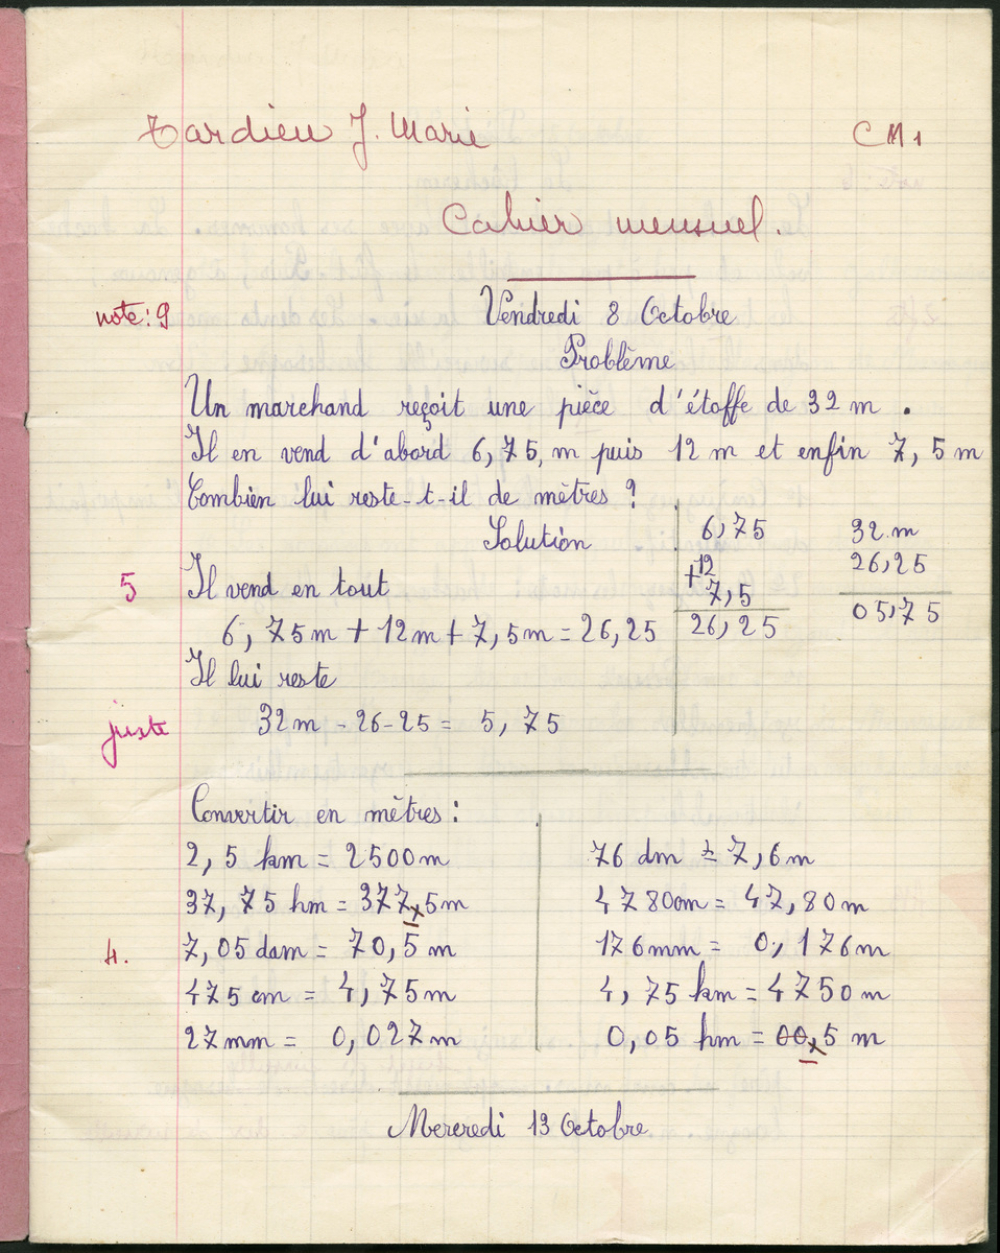 Tardieu J. Marie CM1
Cahier mensuel.
note: 9 Vendredi 8 Octobre
Problème
Un marchand reçoit une pièce d'étoffe de 32 m.
Il en vend d'abord 6,75, m puis 12 m et enfin 7,5 m
Combien lui reste-t-il de mètres ?
Solution
6,75 32 m
+12 26,25
7,5 05,75
26,25
5 Il vend en tout
6, 75m + 12m + 7,5m = 26,25
Il lui reste
juste 32m - 26-25 = 5, 75
Convertir en mètres :
2,5 km = 2500m
37,75 hm = 377,5m
4. 7,05 dam = 70,5 m
475 cm = 4,75m
27mm = 0,027m
76 dm = 7,6m
4780cm = 47,80m
176mm = 0,176m
4,75 km = 4750m
0,05 hm = 00,5 m
Mercredi 13 Octobre